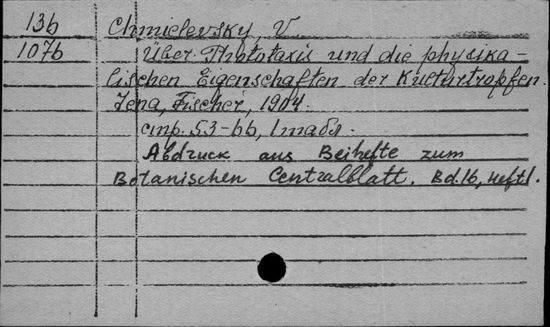 13б Chmielevsky, V
107б Über Phototaxis und die physika-
lischen Eigenschaften der Kulturtropfen.
Jena, Fischer, 1904.
стр. 53-66, 1 табл.
Abdruck aus Beihefte zum
Botanischen Centralblatt. Bd. 16, Heft 1.